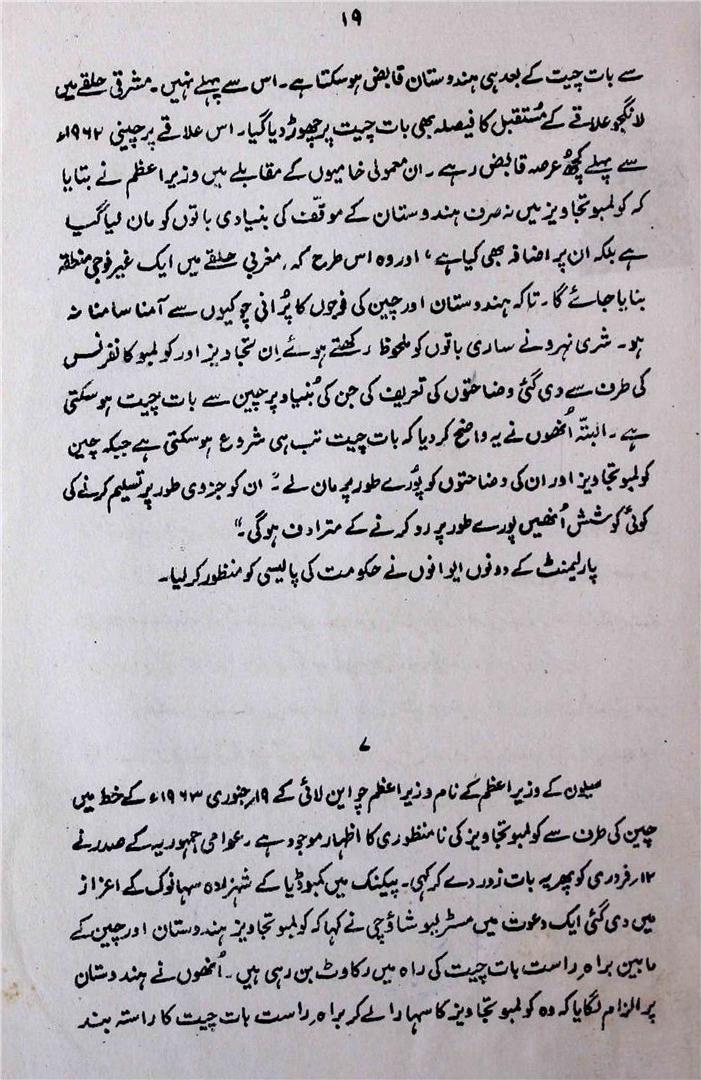 ۱۹
سے بات چیت کے بعد ہی ہندوستان قابض ہوسکتا ہے۔ اس سے پہلے نہیں۔ مشرقی حلقے میں
لانگجو علاقے کے مُستقبل کا فیصلہ بھی بات چیت پر چھوڑ دیا گیا۔ اس علاقے پر چینی ۱۹۶۲ء
سے پہلے کچھ عرصہ قابض رہے۔ ان معمولی خامیوں کے مقابلے میں وزیراعظم نے بتایا
کہ کولمبو تجاویز میں نہ صرف ہندوستان کے موقّف کی بنیادی باتوں کو مان لیا گیا
ہے بلکہ ان پر اضافہ بھی کیا ہے، اور وہ اس طرح کہ، مغربی حلقے میں ایک غیر فوجی منطقہ
بنایا جائے گا۔ تاکہ ہندوستان اور چین کی فوجوں کا پُرانی چوکیوں سے آمنا سامنا نہ
ہو۔ شری نہرو نے ساری باتوں کو ملحوظ رکھتے ہوئے اِن تجاویز اور کولمبو کانفرنس
کی طرف سے دی گئی وضاحتوں کی تعریف کی جن کی بُنیاد پر چین سے بات چیت ہوسکتی
ہے۔ البتّہ اُنھوں نے یہ واضح کردیا کہ بات چیت تب ہی شروع ہوسکتی ہے جبکہ چین
کولمبو تجاویز اور ان کی وضاحتوں کو پُورے طور پر مان لے۔ "ان کو جزوی طور پر تسلیم کرنے کی
کوئی کوشش اُنھیں پورے طور پر رد کرنے کے مترادف ہوگی۔"
پارلیمنٹ کے دونوں ایوانوں نے حکومت کی پالیسی کو منظور کرلیا۔
۷
سیلون کے وزیراعظم کے نام وزیراعظم چو این لائی کے ۱۹؍جنوری ۱۹۶۳ء کے خط میں
چین کی طرف سے کولمبو تجاویز کی نامنظوری کا اظہار موجود ہے۔ عوامی جمہوریہ کے صدر نے
۱۲؍فروری کو پھر یہ بات زور دے کر کہی۔ پیکنگ میں کمبوڈیا کے شہزادہ سہانوک کے اعزاز
میں دی گئی ایک دعوت میں مسٹر لیو شاؤچی نے کہا کہ کولمبو تجاویز ہندوستان اور چین کے
مابین براہِ راست بات چیت کی راہ میں رکاوٹ بن رہی ہیں۔ اُنھوں نے ہندوستان
پر الزام لگایا کہ وہ کولمبو تجاویز کا سہارا لے کر براہِ راست بات چیت کا راستہ بند